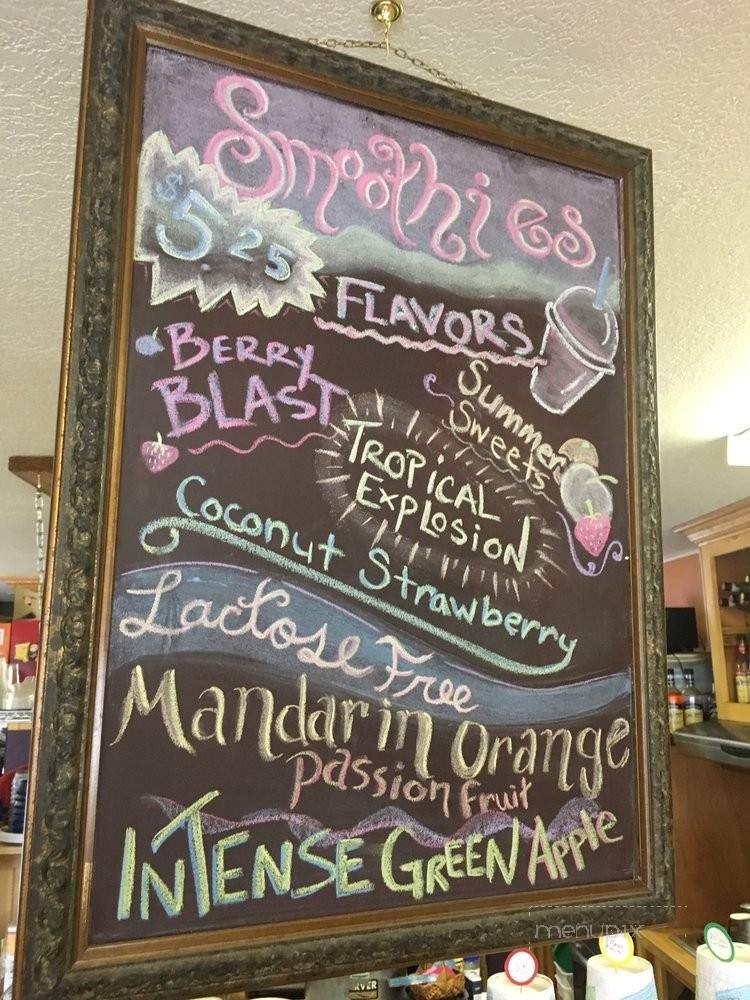 Smoothies
$5.25
FLAVORS!
BERRY
BLAST
Summer
Sweets
TROPICAL
EXPLOSION
Coconut Strawberry
Lactose Free
Mandarin Orange
passion fruit
INTENSE GREEN Apple
menupix